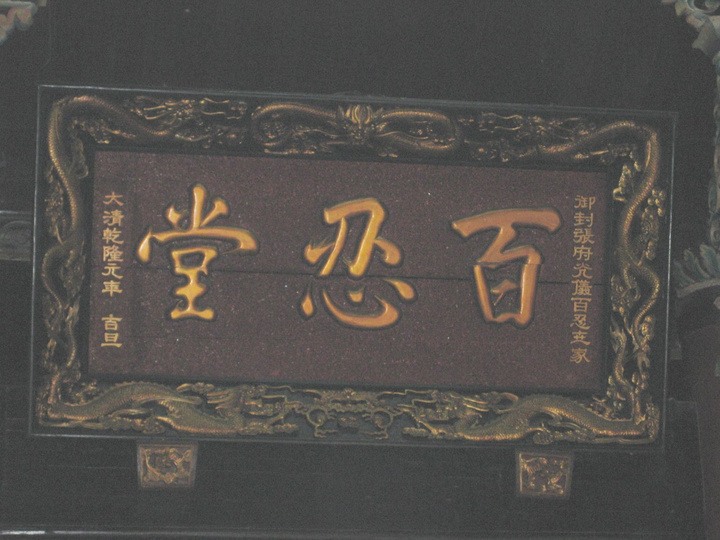 御封張府允儀百忍家
百忍堂
大清乾隆元年 吉旦